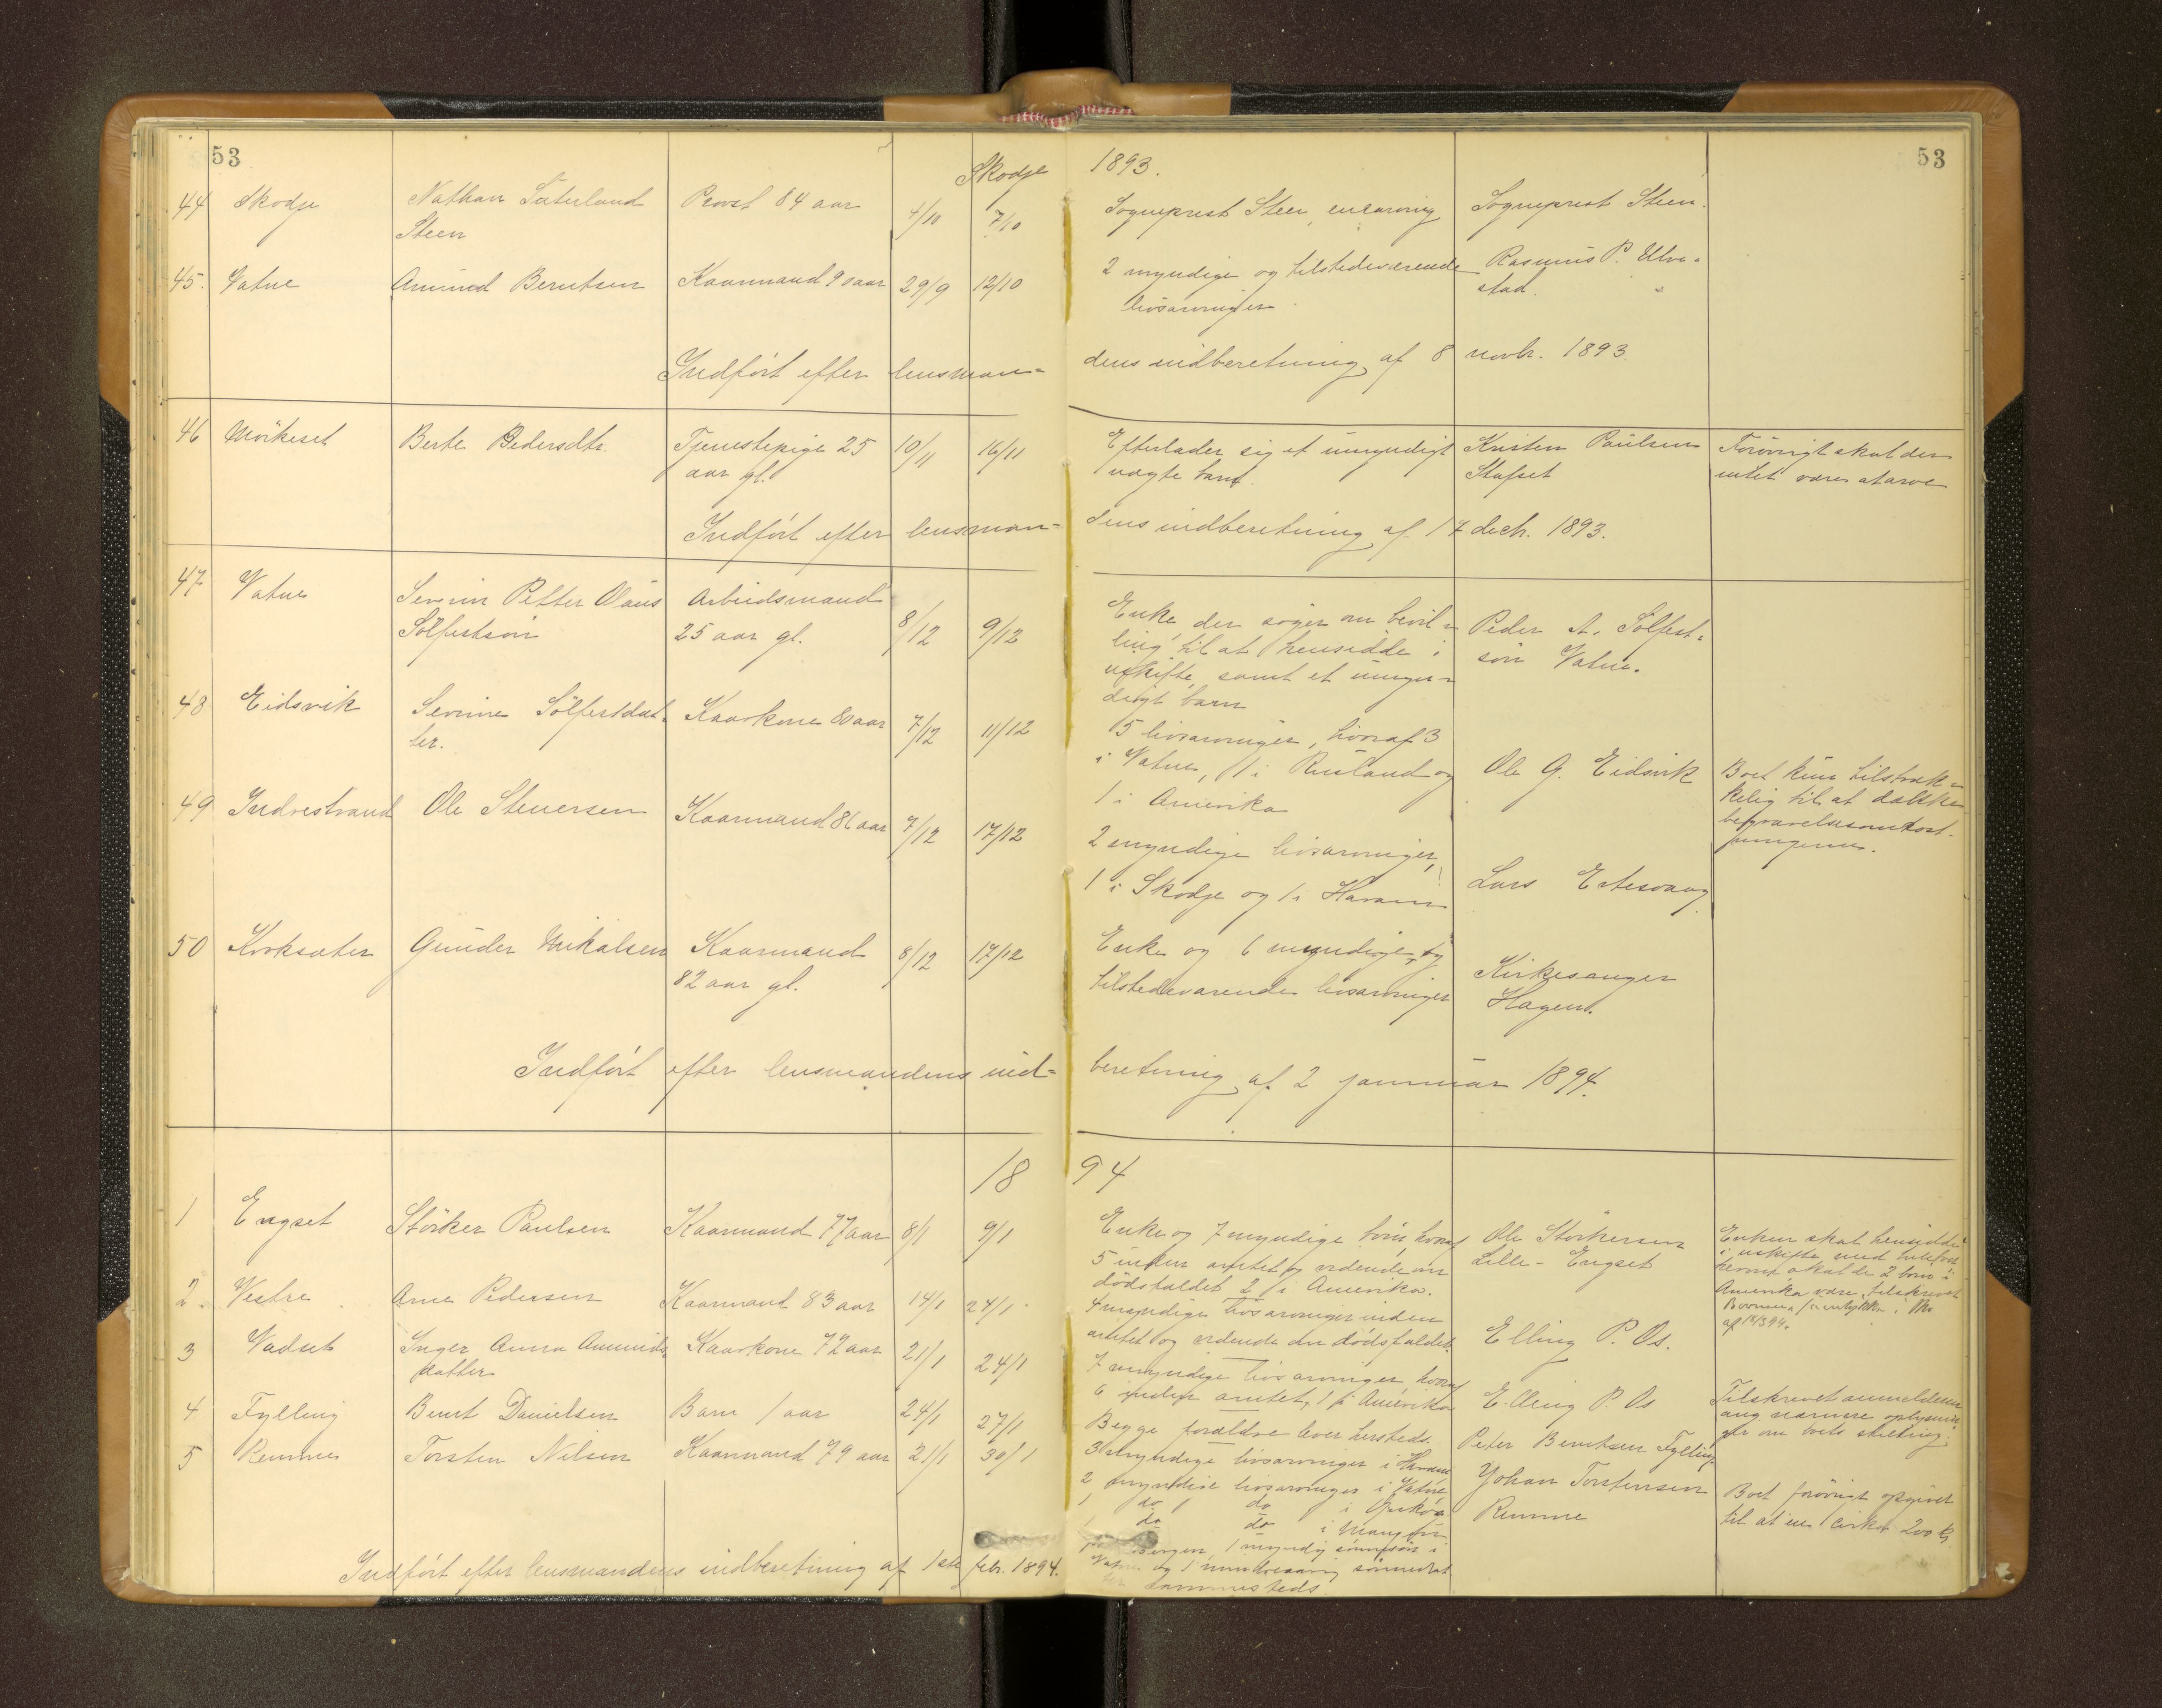 53
Skodje
1893.
53
44 Skodje
Nathan Søterland
Steen
Provst 84 aar
4/10
7/10
Sogneprest Steen, enearving
Sogneprest Steen.
45. Vatne
Amund Berntsen
Kaarmand 90 aar
29/9
12/10
2 myndige og tilstedeværende
livsarvinger
Rasmus P. Ulve-
stad.
Indført efter lensman-
dens indberetning af 8 novbr. 1893.
46 Mørkeset
Berte Pedersdtr.
Tjenestepige 25
aar gl.
10/11
16/11
Efterlader sig et umyndigt
uægte barn.
Karsten Paulsen
Stafset
Forøvrigt skal der
intet være at arve
Indført efter lensman-
dens indberetning af 17 decb. 1893.
47 Vatne
Severin Petter Olaus
Sølfestsøn
Arbeidsmand
25 aar gl.
8/12
9/12
Enke, der søger om bevil-
ling til at hensidde i
uskifte, samt et umyn-
digt barn
Peder A. Sølfest-
søn Vatne.
48 Eidsvik
Severine Sølfestdat-
ter.
Kaarkone 80 aar
7/12
11/12
5 livsarvinger, hvoraf 3
i Vatne, 1 i Rusland og
1 i Amerika
Ole G. Eidsvik
Boet kun tilstræk-
kelig til at dække
begravelsesomkost-
ningerne.
49 Indrestrand
Ole Stenersen
Kaarmand 86 aar
7/12
17/12
2 myndige livsarvinger,
1 i Skodje og 1 i Haram
Lars Ertesvaag
50 Kroksæter
Gunder Mikalsen
Kaarmand
82 aar gl.
8/12
17/12
Enke og 6 myndige og
tilstedeværende livsarvinger
Kirkesanger
Hagen.
Indført efter lensmandens ind-
beretning af 2 januar 1894.
1894
1 Engset
Størker Paulsen
Kaarmand 77 aar
8/1
9/1
Enke og 7 myndige børn, hvoraf
5 inden amtet og vidende om
dødsfaldet 2 i Amerika.
Ole Størkersen
Lille-Engset
Enken skal hensidde
i uskifte med
skal de 2 børn i
Amerika være tilskrevet
2. Vestre
Arne Pedersen
Kaarmand 83 aar
14/1
24/1
4 myndige livsarvinger inden
amtet og vidende om dødsfaldet.
Elling P. Os.
3 Vadset
Inger Anna Amunds-
datter
Kaarkone 72 aar
21/1
24/1
7 myndige livsarvinger hvoraf
6 inden amtet, 1 i Amerika
Elling P. Os
Tilskrevet anmelderen
ang nærmere oplysnin-
ger om boets stilling.
4 Fylling
Bernt Danielsen
Barn 1 aar
24/1
27/1
Begge forældre lever hersteds.
Peter Berntsen Fylling
5 Remme
Torsten Nilsen
Kaarmand 79 aar
21/1
30/1
3 myndige livsarvinger i Haram
2 myndige livsarvinger i Vatne
1 do do i
1 do do i
Bergen, 1 myndig sønnesøn i
Vatne og 1 mindreaarig sønnedat
ter sammesteds.
Johan Torstensen
Remme
Boet forøvrigt opgivet
til at eie cirka 200 kr
Indført efter lensmandens indberetning af 1ste febr. 1894.